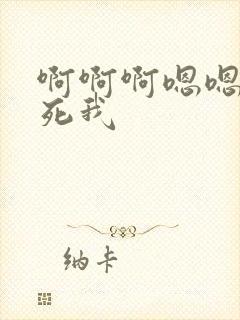 啊啊啊嗯嗯
死我
纳卡